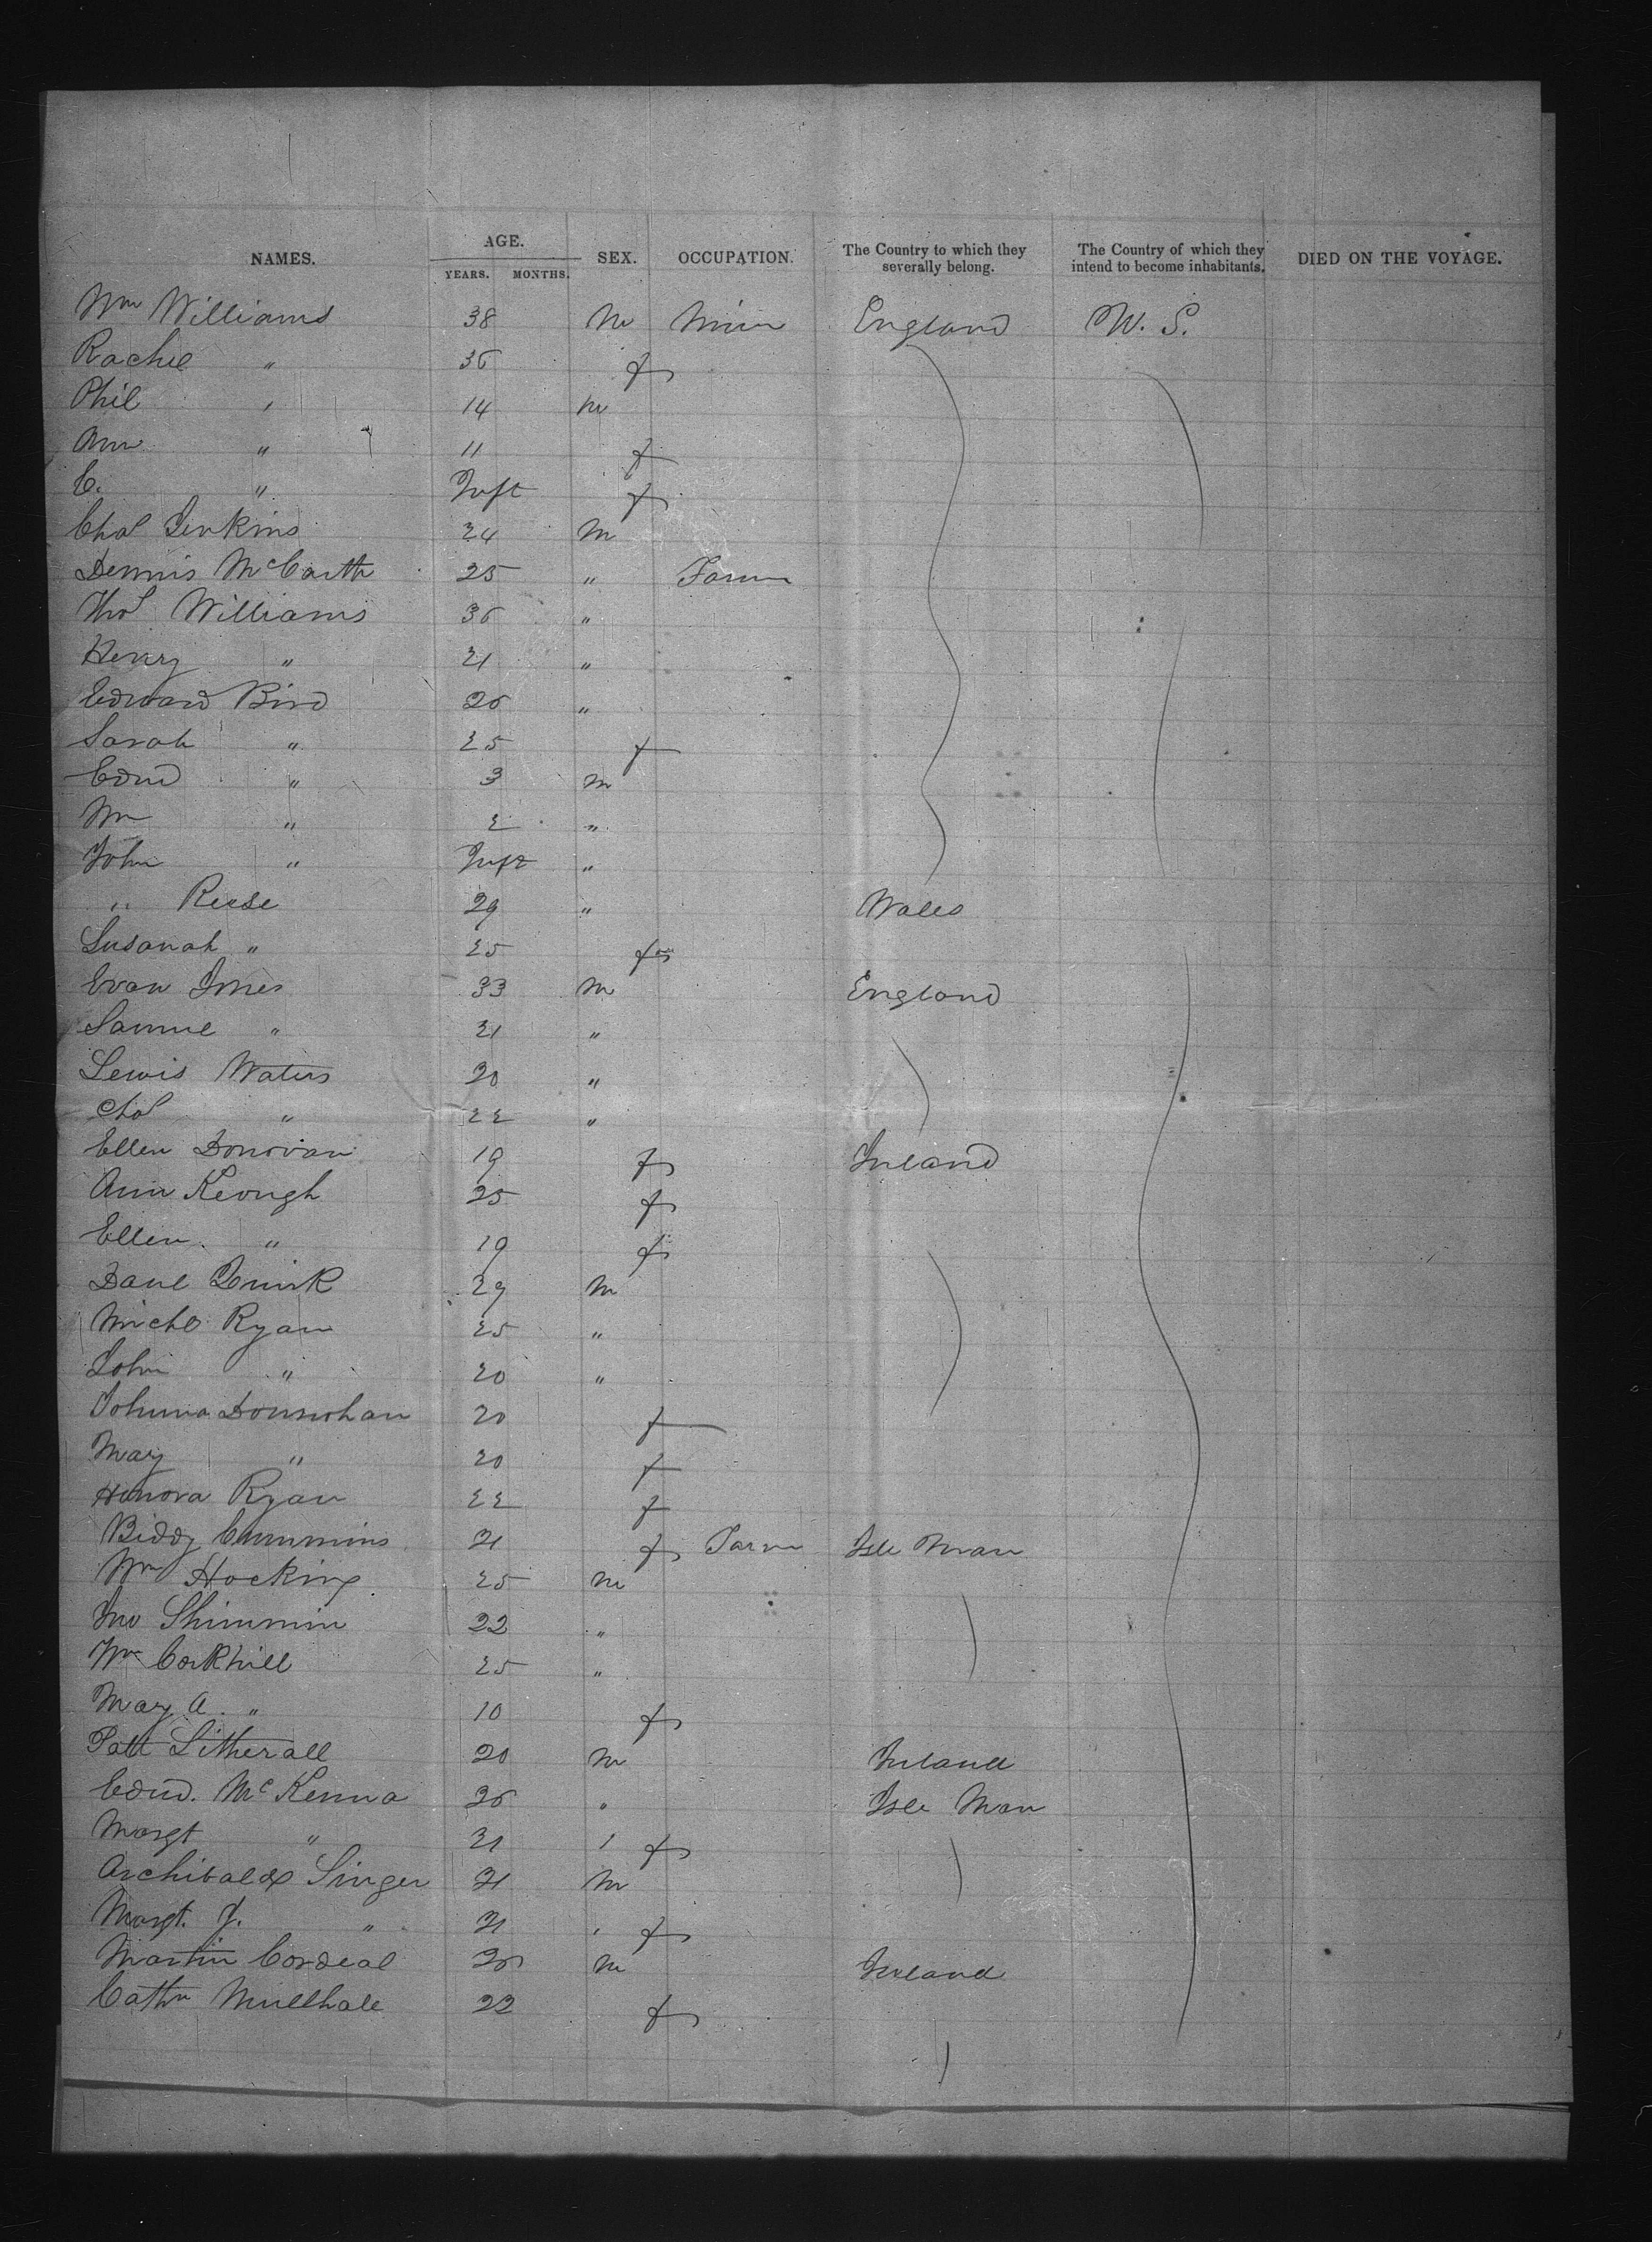 NAMES. AGE. YEARS. MONTHS. SEX. OCCUPATION. The Country to which they severally belong. The Country of which they intend to become inhabitants. DIED ON THE VOYAGE.
Wm Williams 38 M Miner England U. S.
Rachel " 36 f
Phil " 14 M
Ann " 11 f
C. " Inft f
Chas Jenkins 24 M
Dennis McCarth 25 " Farm
Thos Williams 36 "
Henry " 21 "
Edward Bird 26 "
Sarah " 25 f
Edwd " 3 M
Wm " 2 "
John " Inft "
" Reese 29 " Wales
Susanah " 25 f
Evan Jones 33 M England
Samue " 21 "
Lewis Waters 20 "
Chas " 22 "
Ellen Donovan 19 f Ireland
Ann Keough 25 f
Ellen " 19 f
Danl Quirk 29 M
Michl Ryan 25 "
John " 20 "
Johnna 20 f
Mary " 20 f
Honora Ryan 22 f
Biddy Cummins 21 f Farm Isle Man
Wm Hocking 25 M
Jno Shimmin 22 "
Wm Corkhill 25 "
Mary A. " 10 f
Patt Litherall 20 M Ireland
Edwd. McKenna 26 " Isle Man
Margt " 21 " f
Archibald Singer 21 M
Margt. J. " 21 " f
Martin Cordeal M Ireland
Cathn Mullhall 22 f